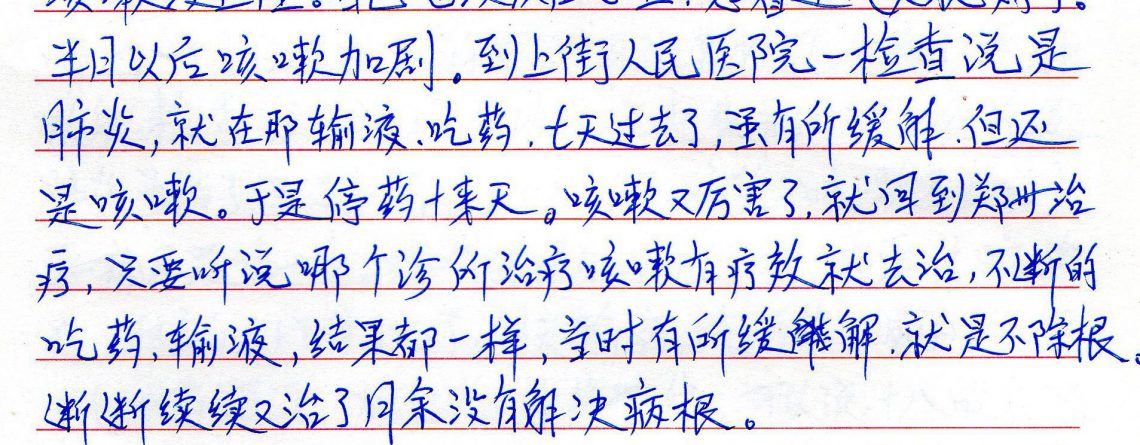 半月以后咳嗽加剧。到上街人民医院一检查说是
肺炎,就在那输液、吃药,七天过去了,虽有所缓解,但还
是咳嗽。于是停药十来天。咳嗽又厉害了,就回到郑州治
疗,只要听说哪个诊所治疗咳嗽有疗效就去治,不断的
吃药,输液,结果都一样,当时有所缓解,就是不除根。
断断续续又治了月余没有解决病根。